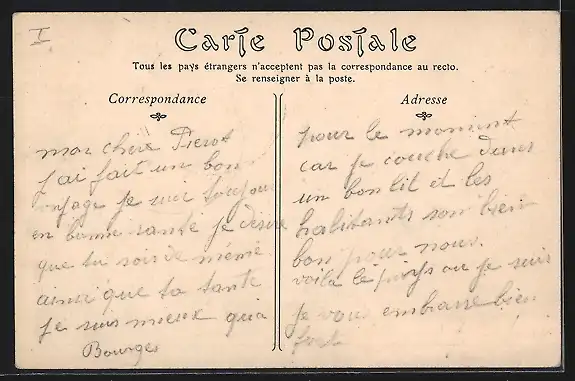 I
Carte Postale
Tous les pays étrangers n'acceptent pas la correspondance au recto.
Se renseigner à la poste.
Correspondance
mon chère Pierot
j'ai fait un bon
voyage je suis toujour
en bonne santé je désire
que tu sois de même
ainsi que ta tante
je suis mieux qu'a
Bourges
Adresse
pour le moment
car je couche dans
un bon lit et les
habitants son bien
bon pour nous.
voila le pays ou je suis
je vous embrasse bien
fort